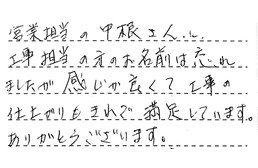 営業担当の甲根さん、
工事担当の方のお名前は忘れ
ましたが感じが良くて工事の
仕上がりもきれで満足しています。
ありがとうございます。